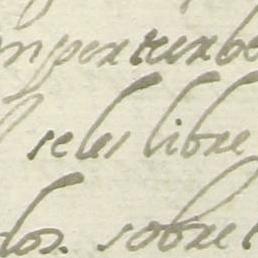 mperturbe
seles libre
dos. sobre